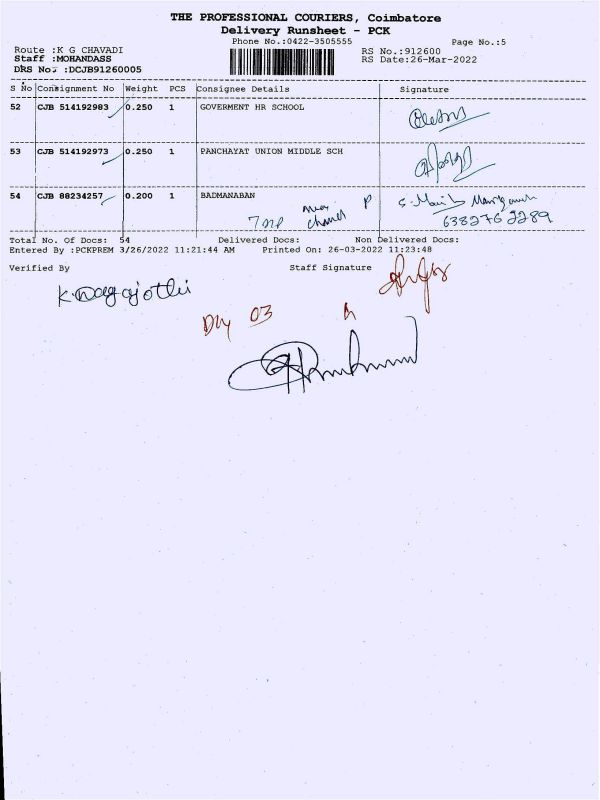 THE PROFESSIONAL COURIERS, Coimbatore
Delivery Runsheet - PCK
Phone No.:0422-3505555 Page No.:5
Route :K G CHAVADI RS No.:912600
Staff :MOHANDASS RS Date:26-Mar-2022
DRS No. :DCJB91260005
S No Consignment No Weight PCS Consignee Details Signature
52 CJB 514192983 0.250 1 GOVERMENT HR SCHOOL
53 CJB 514192973 0.250 1 PANCHAYAT UNION MIDDLE SCH
54 CJB 88234257 0.200 1 BADMANABAN
6382762289
Total No. Of Docs: 54 Delivered Docs: Non Delivered Docs:
Entered By :PCKPREM 3/26/2022 11:21:44 AM Printed On: 26-03-2022 11:23:48
Verified By Staff Signature
K. Nagajothi
Dly 03